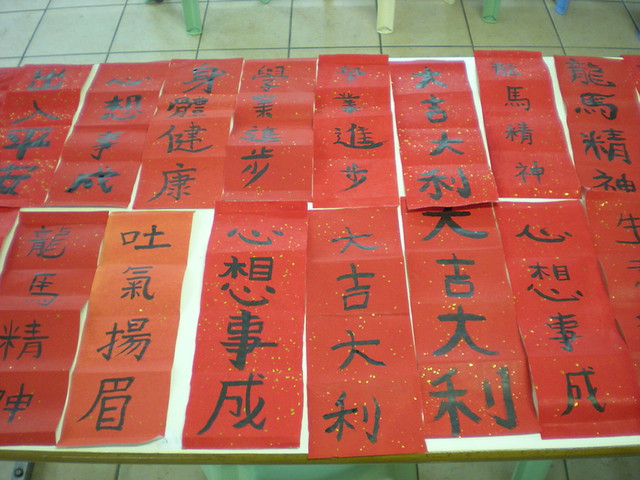 出入平安
心想事成
身體健康
學業進步
學業進步
大吉大利
龍馬精神
龍馬精神
龍馬精神
吐氣揚眉
心想事成
大吉大利
大吉大利
心想事成
生